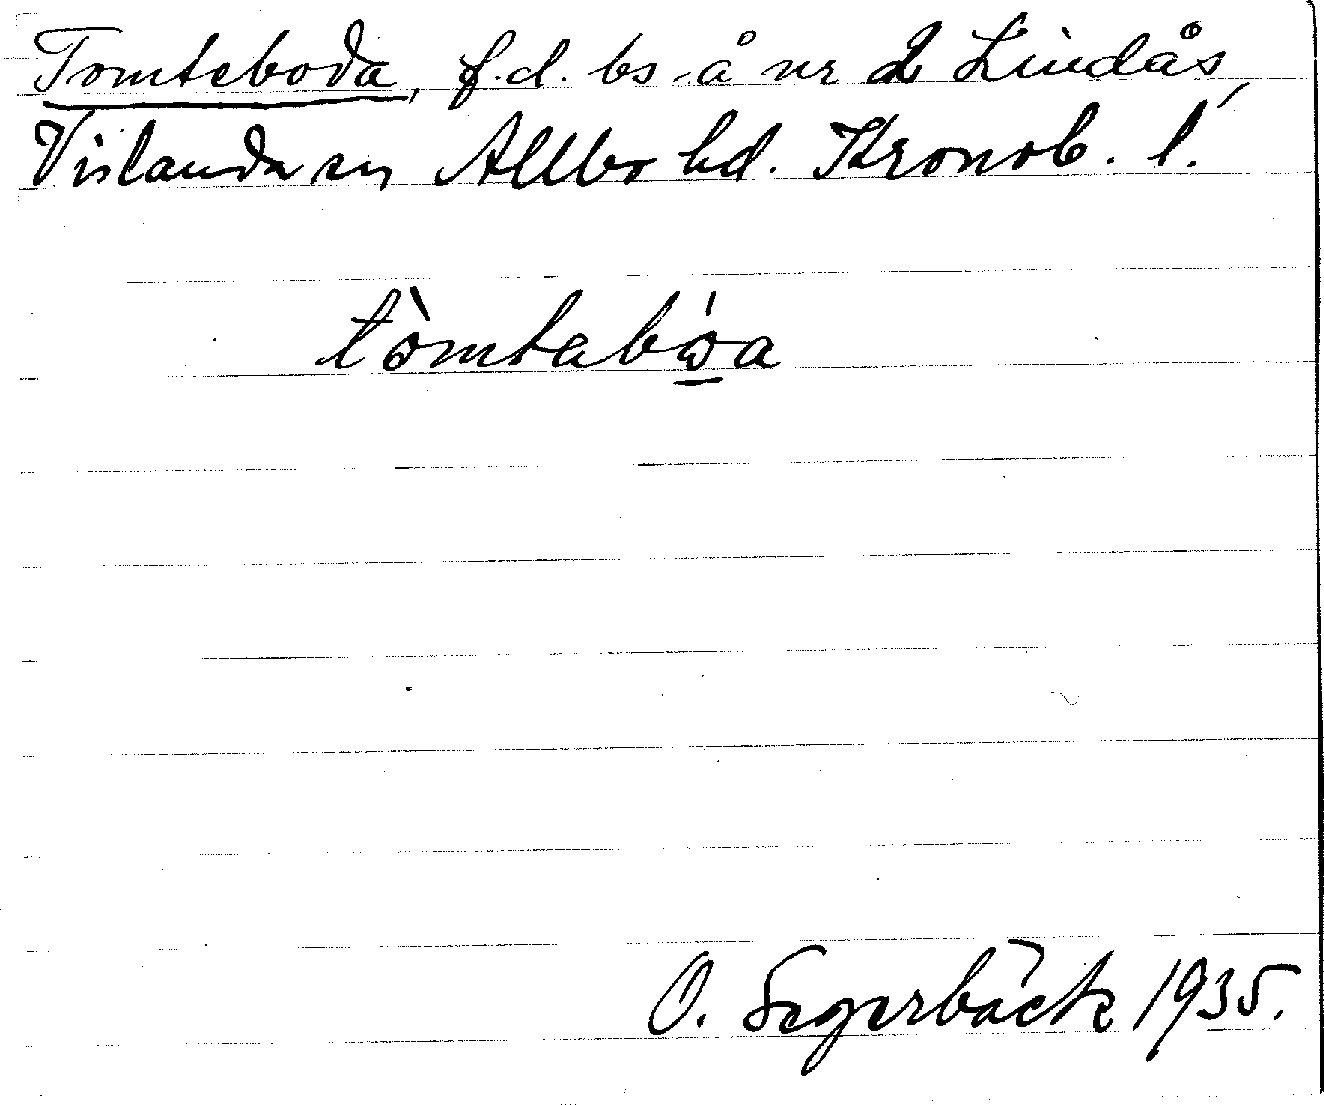 Tomteboda, f.d. bs å nr 2 Lindås,
Vislanda sn Allbo hd. Kronob. l.
tòmtabóa
O. Segerbäck 1935.